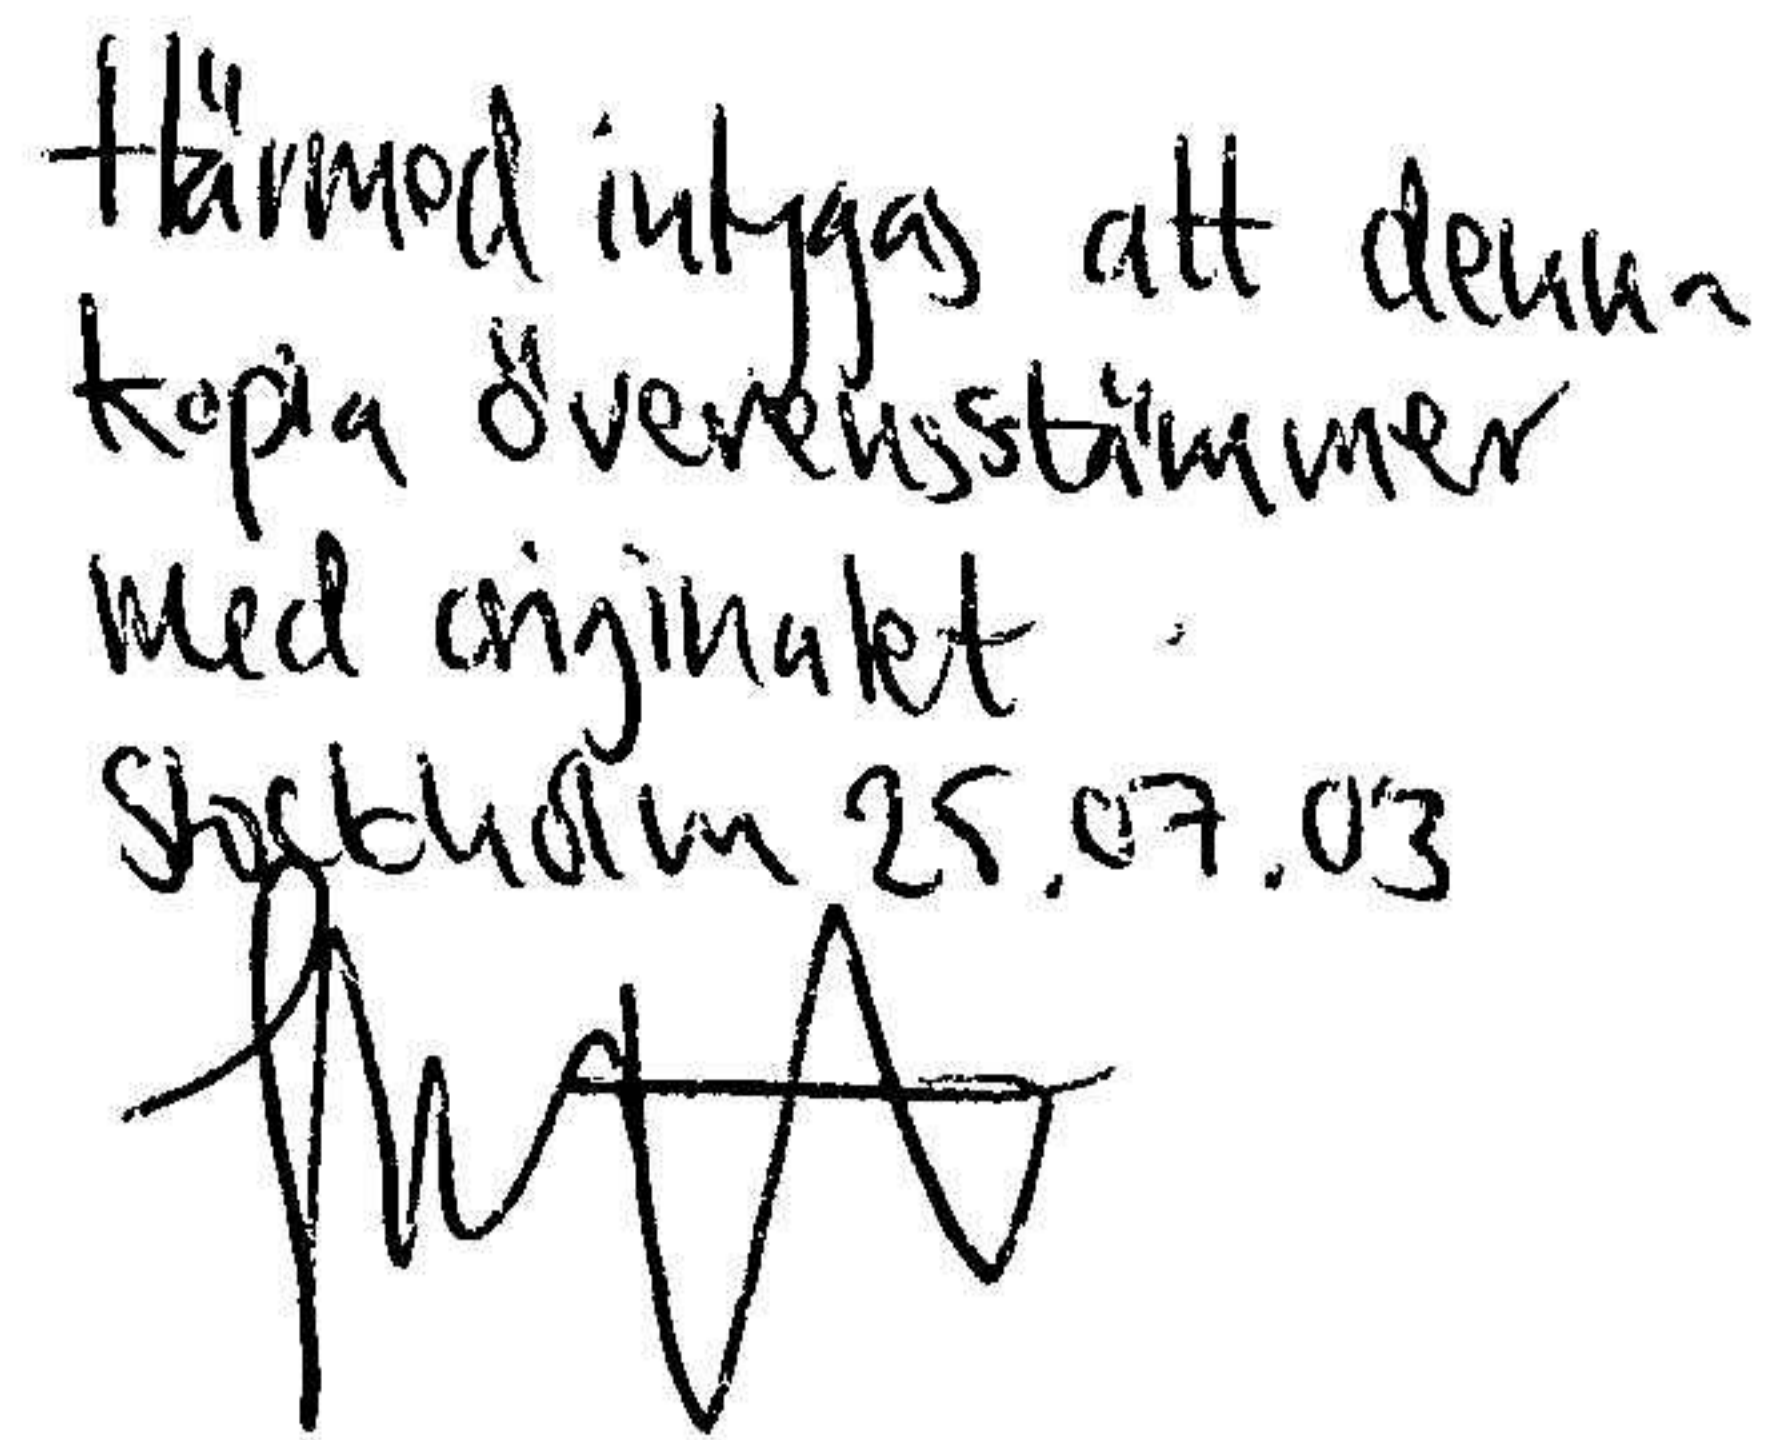 Härmed intygas att denna
kopia överensstämmer
med originalet
Stockholm 25.07.03